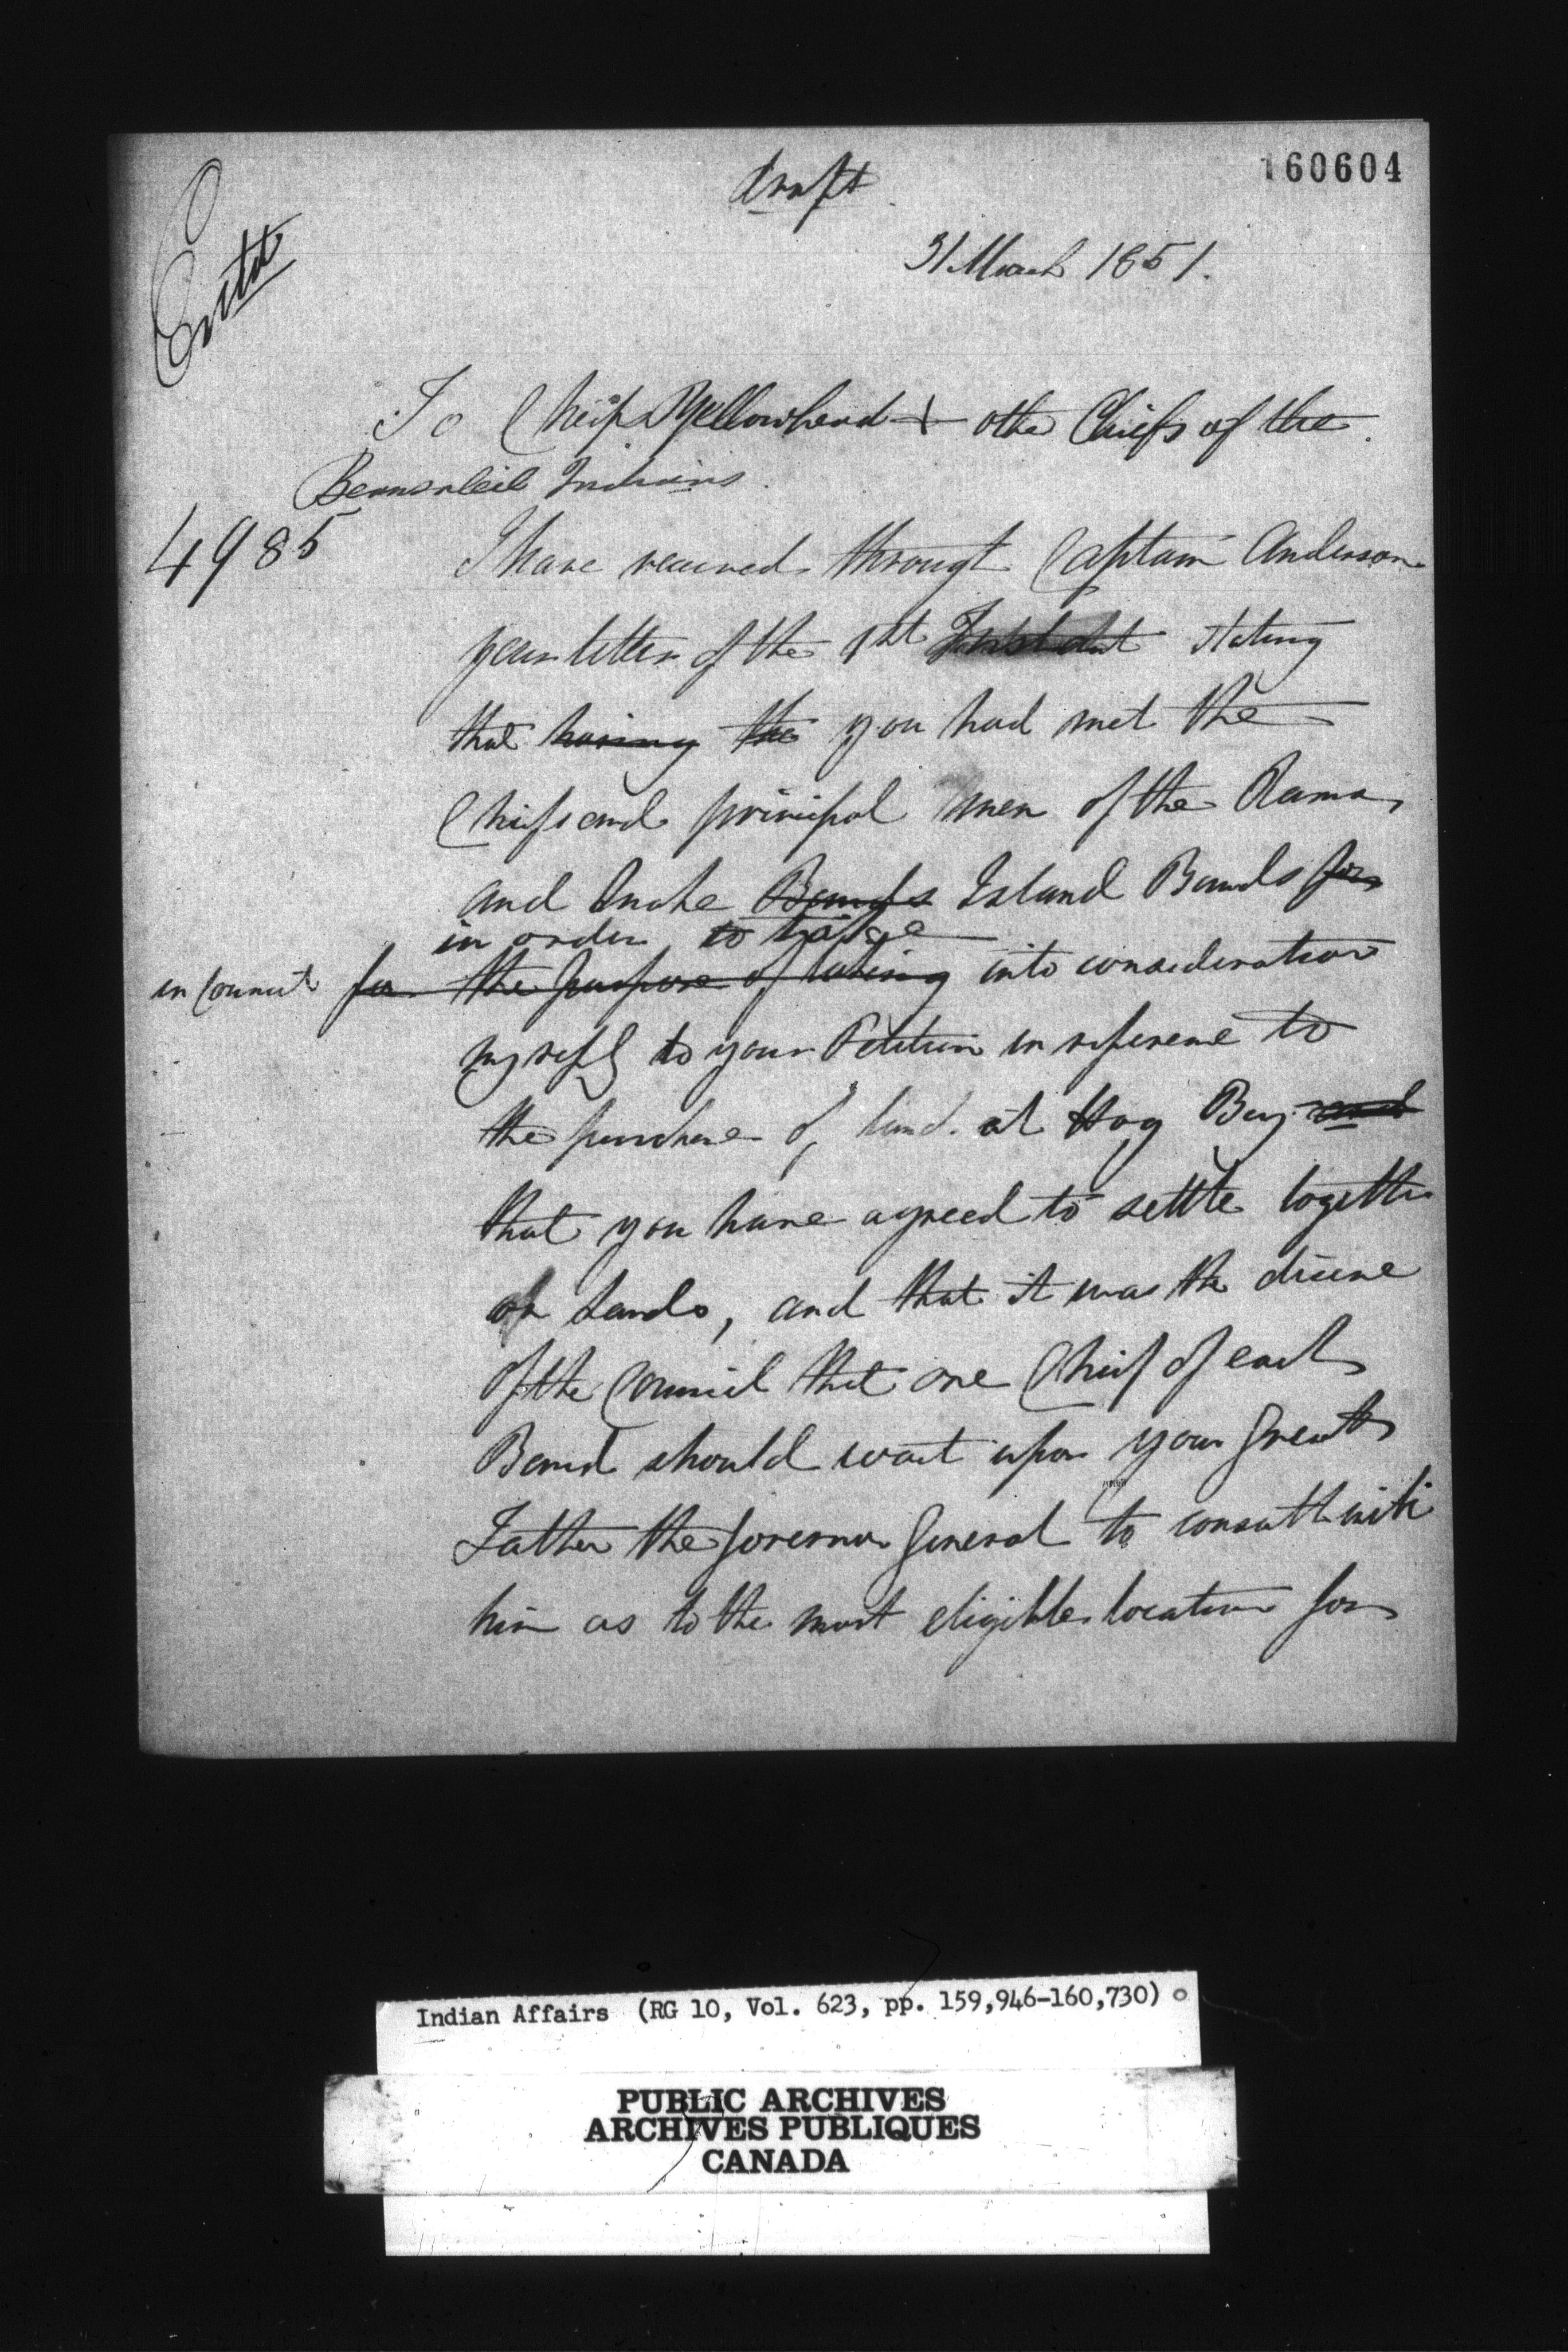 160604
draft
31 March 1851.
Entd
To Chiefs Yellowhead + other Chiefs of the
Beausoleil Indians.
4985
I have received through Captain Anderson
your letter of the 1st Instant stating
that having the you had met the
Chiefs and principal men of the Rama
and Snake Bands Island Bands for
in order to take
in Council for the purpose of taking into consideration
my reply to your Petition in reference to
the purchase of land at Hog Bay and
that you have agreed to settle together
on Lands, and that it was the desire
of the Council that one Chief of each
Band should wait upon your Great
Father the Governor General to consult with
him as to the most eligible location for
Indian Affairs (RG 10, Vol. 623, pp. 159,946-160,730)
PUBLIC ARCHIVES
ARCHIVES PUBLIQUES
CANADA